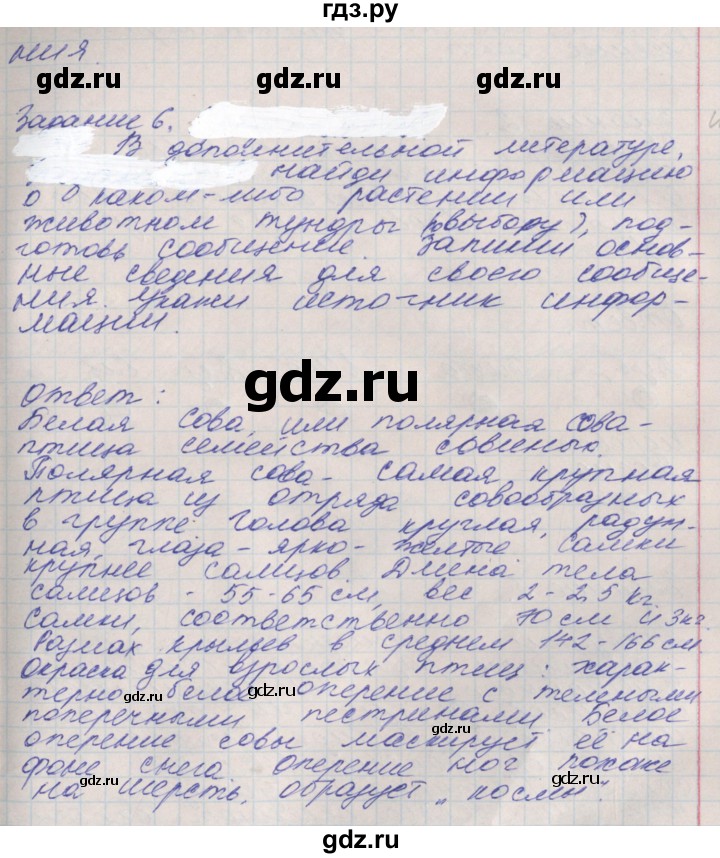 гдз.ру
ния.
gdz.ru gdz.ru
Задание 6.
В дополнительной литературе,
gdz.ru gdz.ru
найди информацию
о о каком-либо растении или
животном тундры (по выбору), под-
готовь сообщение. Запиши основ-
ные сведения для своего сообще-
ния. Укажи источник инфор-
мации.
gdz.ru
Ответ:
Белая сова, или полярная сова-
птица семейства совиных.
Полярная сова- самая крупная
птица из отряда совообразных
в группе. Голова круглая, радуж-
ная, глаза - ярко- желтые самки
крупнее самцов. Длина тела
самцов - 55-65 см, вес 2-2,5 кг.
самки, соответственно 70 см и 3 кг.
Размах крыльев в среднем 142-166 см
Окраска для взрослых птиц: харак-
терно белое оперение с темными
поперечными пестринами. Белое
оперение совы маскирует её на
фоне снега. оперение ног похоже
на шерсть, образует „космы".
gdz.ru gdz.ru
gdz.ru